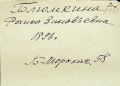 Блюмкина
Фаина Зиновьевна
1896.
Б-Морская 58